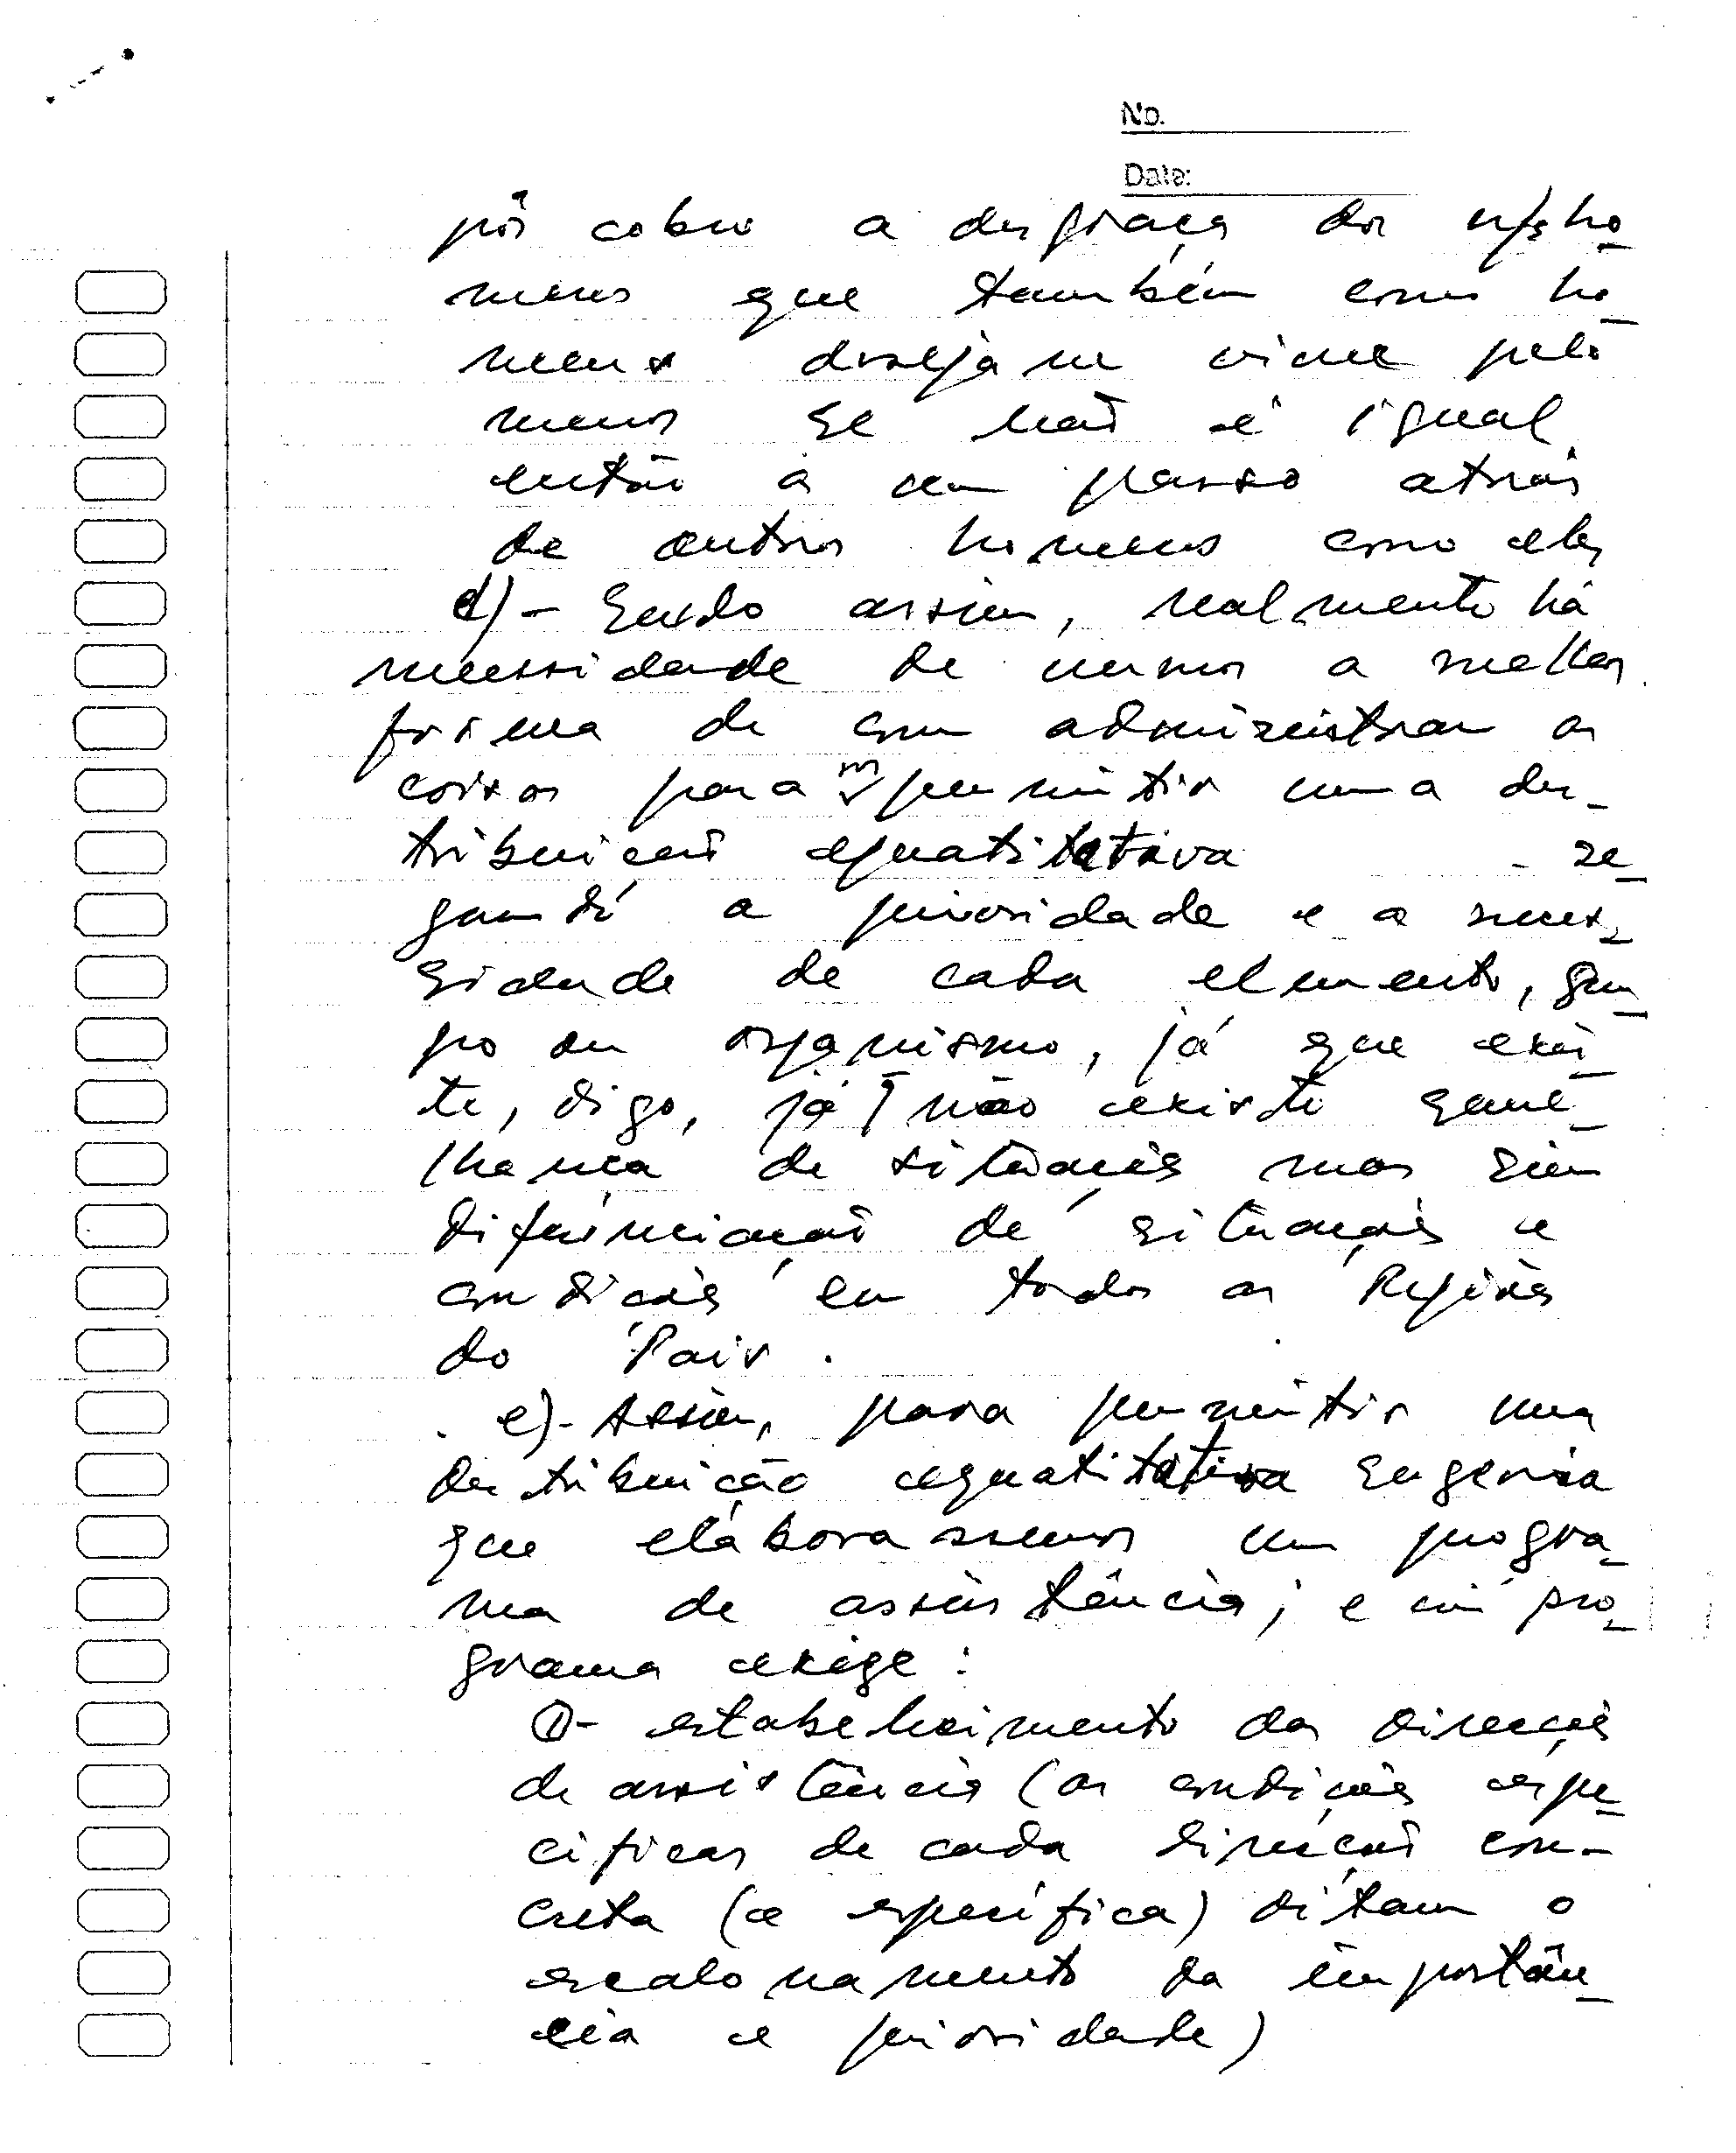 No.
Date:
pôr cobro a desgraça dos n/s ho-
mens que também como ho-
mens desejam viver pelo
menos se não é igual
então a um passo atrás
de outros homens como eles
d)- Sendo assim, realmente há
necessidade de vermos a melhor
forma de com administrar as
coisas para permitir uma des-
tribuição equatitativa - se-
gundo a prioridade e a neces-
sidade de cada elemento, gru-
po ou organismo, já que exis-
te, digo, já não existe seme-
lhança de situações mas sim
diferenciação de situações e
condições em todas as Regiões
do Pais.
e)- Assim, para permitir uma
destribuição equatitativa sugeria
que elaborassemos um progra-
ma de assistência; e um pro-
grama exige:
1- estabelecimento das direcções
de assistência (as condições espe-
cificas de cada direcção con-
creta (e específica) ditam o
escalonamento da importân-
cia e prioridade)